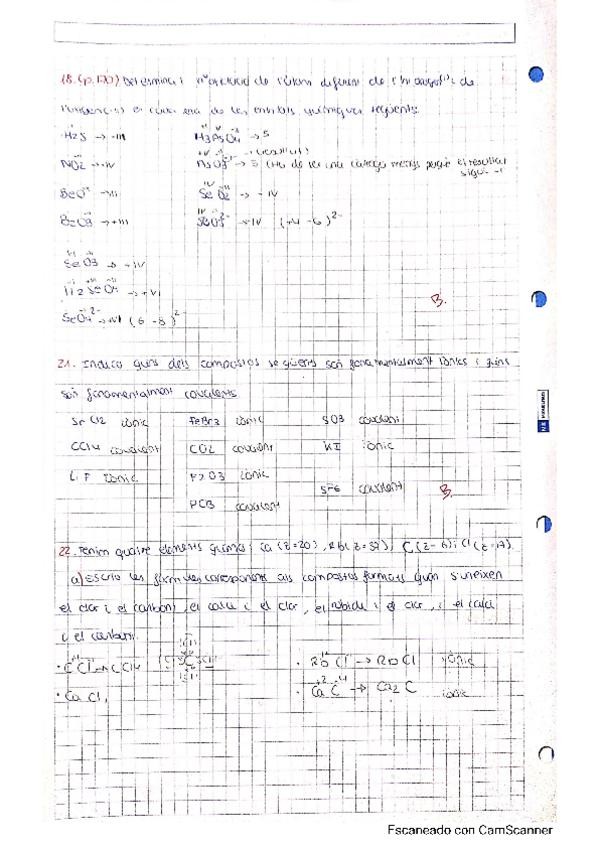 18. (p.120) Determina el nº oxidació de l'àtom diferent de l'hidrogen i de
l'oxigen en cada una de les entitats químiques següents.
H2S → -II H3AsO4 → 5
NO2 → +IV AsO3 → 3 (Ha de ser una càrrega menys perquè el resultat
sigui -1
SeO2 → +IV
SeO3 2- → +IV (+4 -6)2-
SeO3 → +IV
H2SeO4 → +VI
SeO4 2- → +VI (6 -8)2-
B.
21. Indica quins dels compostos següents són fonamentalment iònics i quins
són fonamentalment covalents
SrCl2 iònic FeBr3 iònic SO3 covalent
CCl4 covalent CO2 covalent KI iònic
LiF iònic P2O3 iònic
SF6 covalent B.
covalent
22. Tenim quatre elements químics: Ca (Z=20), Rb (Z=37), C (Z=6) i Cl (Z=17).
a) Escriu les fórmules corresponents als compostos formats quan s'uneixen
el clor i el carboni, el calci i el clor, el rubidi i el clor, i el calci
i el carboni.
CCl4 · RbCl → RbCl iònic
· CaCl2 · CaC → Ca2C iònic
Escaneado con CamScanner